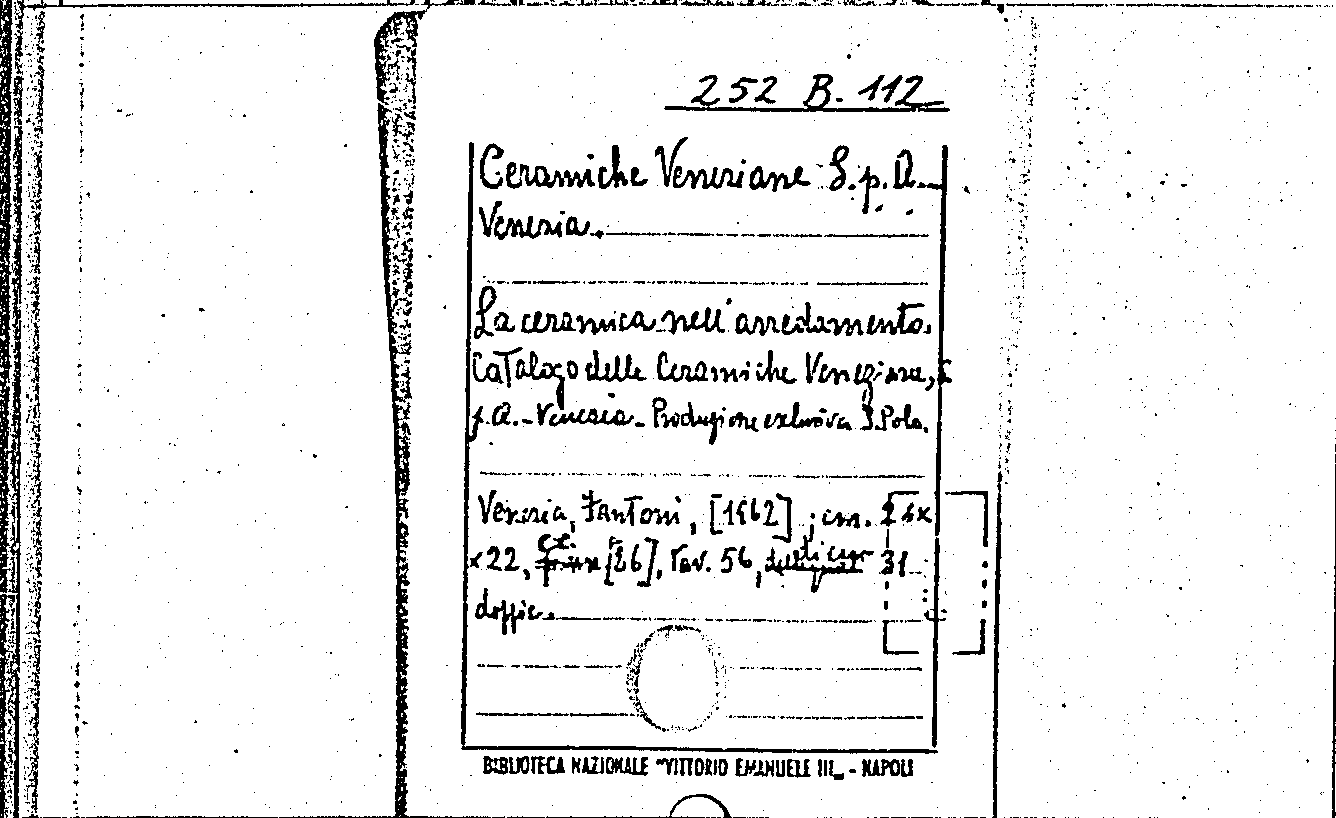 252 B. 112
Ceramiche Veneziane S.p.A.
Venezia.
La ceramica nell'arredamento.
Catalogo delle Ceramiche Veneziane, S.
p.A. - Venezia - Produzione esclusiva J. Polo.
Venezia, Fantoni, [1962]; cm. 24x
x22, cc. [26], Tav. 56, di cui 31
doppie.
BIBLIOTECA NAZIONALE "VITTORIO EMANUELE III" - NAPOLI